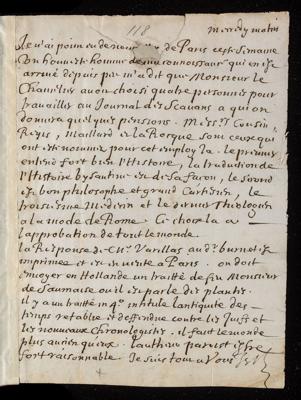 118
mercredy matin
Je n'ai point eu de nouv de Paris ceste semaine
Un honneste homme de ma connoissance qui en est
arrivé depuis peu m'a dit que Monsieur le
Chancelier avoit choisi quatre personnes pour
travailler au Journal des Scavans a qui on
donnera quelques pensions. Mess.rs Cousin,
Regis, Maillard et la Rocque sont ceux qui
ont esté nommez pour cet employ la. le premier
entend fort bien l'Histoire, la traduction de
l'Histoire byzantine est de sa facon, le second
est bon philosophe et grand Cartesien, le
troisieme Medecin et le dernier Theologien
a la mode de Rome. Ce choix la a
l'approbation de tout le monde.
la Response de Mr. Varillas au dr burnet est
imprimée et en vente a Paris. on doit
envoyer en Hollande un traitté de feu Monsieur
de Saumaise ou il est parlé des plantes.
Il y a un traitté in 4o intitulé l'antiquité des
temps retablie et deffendue contre les Juifs et
les nouveaux Chronologistes. il fait le monde
plus ancien qu'eux. l'autheur paroist estre
fort raisonnable. Je suis tout a Vous